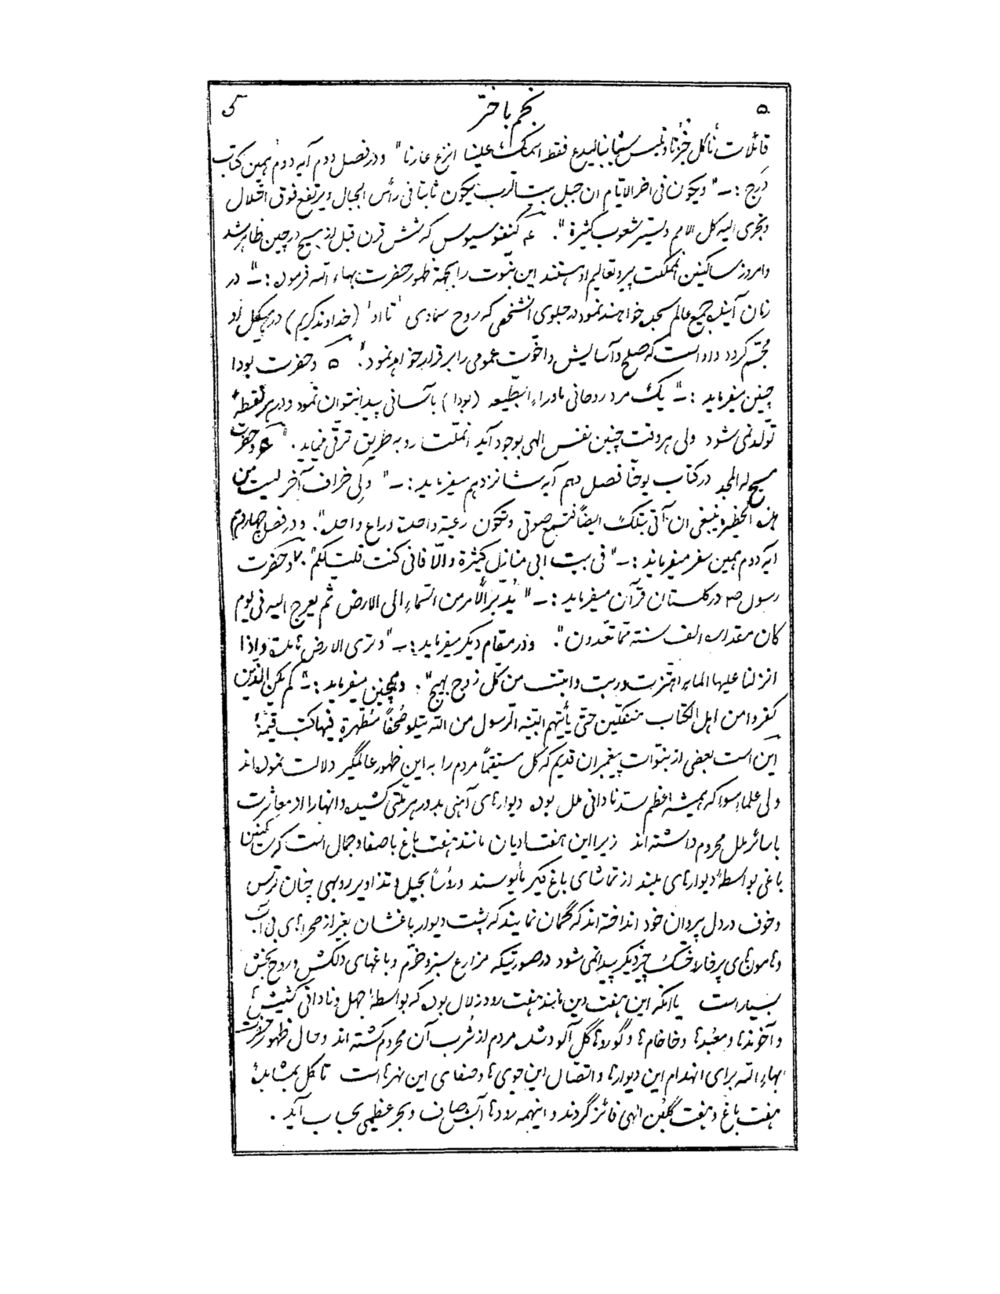 ۵ نجم باختر
قائلات نأکل خبزنا و نلبس ثیابنا لیدع فقط اسمک علینا انزع عارنا" و در فصل دوم آیه دوم همین کتاب
درج :ـ "ویکون فی اخر الایام ان جبل بیت الرب یکون ثابتا فی رأس الجبال و یرتفع فوق التلال
و تجری الیه کل الامم و تسیر شعوب کثیرة". ع کنفوسیوس که شش قرن قبل از مسیح در چین ظاهر شد
و امروز ساکنین مملکت پیرو تعالیم او هستند این نبوت را بجهة ظهور حضرت بهاء الله فرمود :ـ "در
زمان آینده جمیع عالم سجده خواهند نمود در جلوی الشخصی که روح سماوی 'تااد' (خداوند کریم) در هیکل او
مجسم گردد و او است که صلح و آسایش و اخوت عمومی را برقرار خواهد نمود" ۵ و حضرت بودا
چنین میفرماید :ـ "یک مرد روحانی ماوراء الطبیعه (بودا) بآسانی پیدا نتوان نمود و در هر نقطهٔ
تولد نمی شود ولی هر وقت چنین نفس الهی بوجود آید آنملت رو به طریق ترقی نماید." ۶ و حضرت
مسیح له المجد در کتاب یوحنا فصل دهم آیه شانزدهم میفرماید :ـ "ولی خراف آخر لیست من
هذه الحظیرة ینبغی ان آتی بتلک ایضاً فتسمع صوتی و تکون رعیة واحدة وراع واحد". و در فصل چهاردهم
آیه دوم همین سفر میفرماید :ـ "فی بیت ابی منازل کثیرة و الّا فانی کنت قلت لکم" ۷ و حضرت
رسول ص در گلستان قرآن میفرماید :ـ "یدبّر الأمر من السّماء الی الارض ثم یعرج الیه فی یوم
کان مقداره الف سنة ممّا تعدّون". و در مقام دیگر میفرماید :ـ "و تری الارض هامدة و اذا
انزلنا علیها الماء اهتزت و ربت و انبتت من کل زوج بهیج". و همچنین میفرماید :ـ "لم یکن الذین
کفروا من اهل الکتاب منفکین حتی یأتیهم البینة الرسول من الله یتلو صُحُفاً مُطهرة فیها کتب قیّمة"
این است بعضی از نبوات پیغمبران قدیم که کل مستقیماً مردم را به این ظهور عالمگیر دلالت نموده اند
ولی علماء سوء که همیشه اعظم سد نادانی ملل بوده دیوارهای آهنی بدور هر ملتی کشیده و آنها را از معاشرت
با سائر ملل محروم داشته اند زیرا این هفت ادیان مانند هفت باغ با صفا و جمال است که ساکنین
باغی بواسطهٔ دیوارهای بلند از تماشای باغ دیگر مأیوسند و رؤسا بحیل و تزاویر روبهی چنان ترس
و خوف در دل پیروان خود انداخته اند که گمان نمایند که پشت دیوار باغشان بغیر از صحراهای بی آب
و هامونهای پر خار و خشک چیز دیگر پیدا نمی شود در صورتیکه مزارع سبز و خرّم و باغهای دلکش و روح بخش
بسیار است یا آنکه این هفت دین مانند هفت رود زلال بوده که بواسطهٔ جهل و نادانی کشیش ها
و آخوندها و معبدها و خاخام ها و گوروها گل آلود شده مردم از شرب آن محروم گشته اند و حال ظهور حضرت
بهاء الله برای انهدام این دیوارها و اتصال این جوی ها و صفای این نهرها است تا کل بمشاهدهٔ
هفت باغ و هفت گلشن الهی فائز گردند و اینهمه رودها آب صاف و بحر عظیمی بحساب آید .